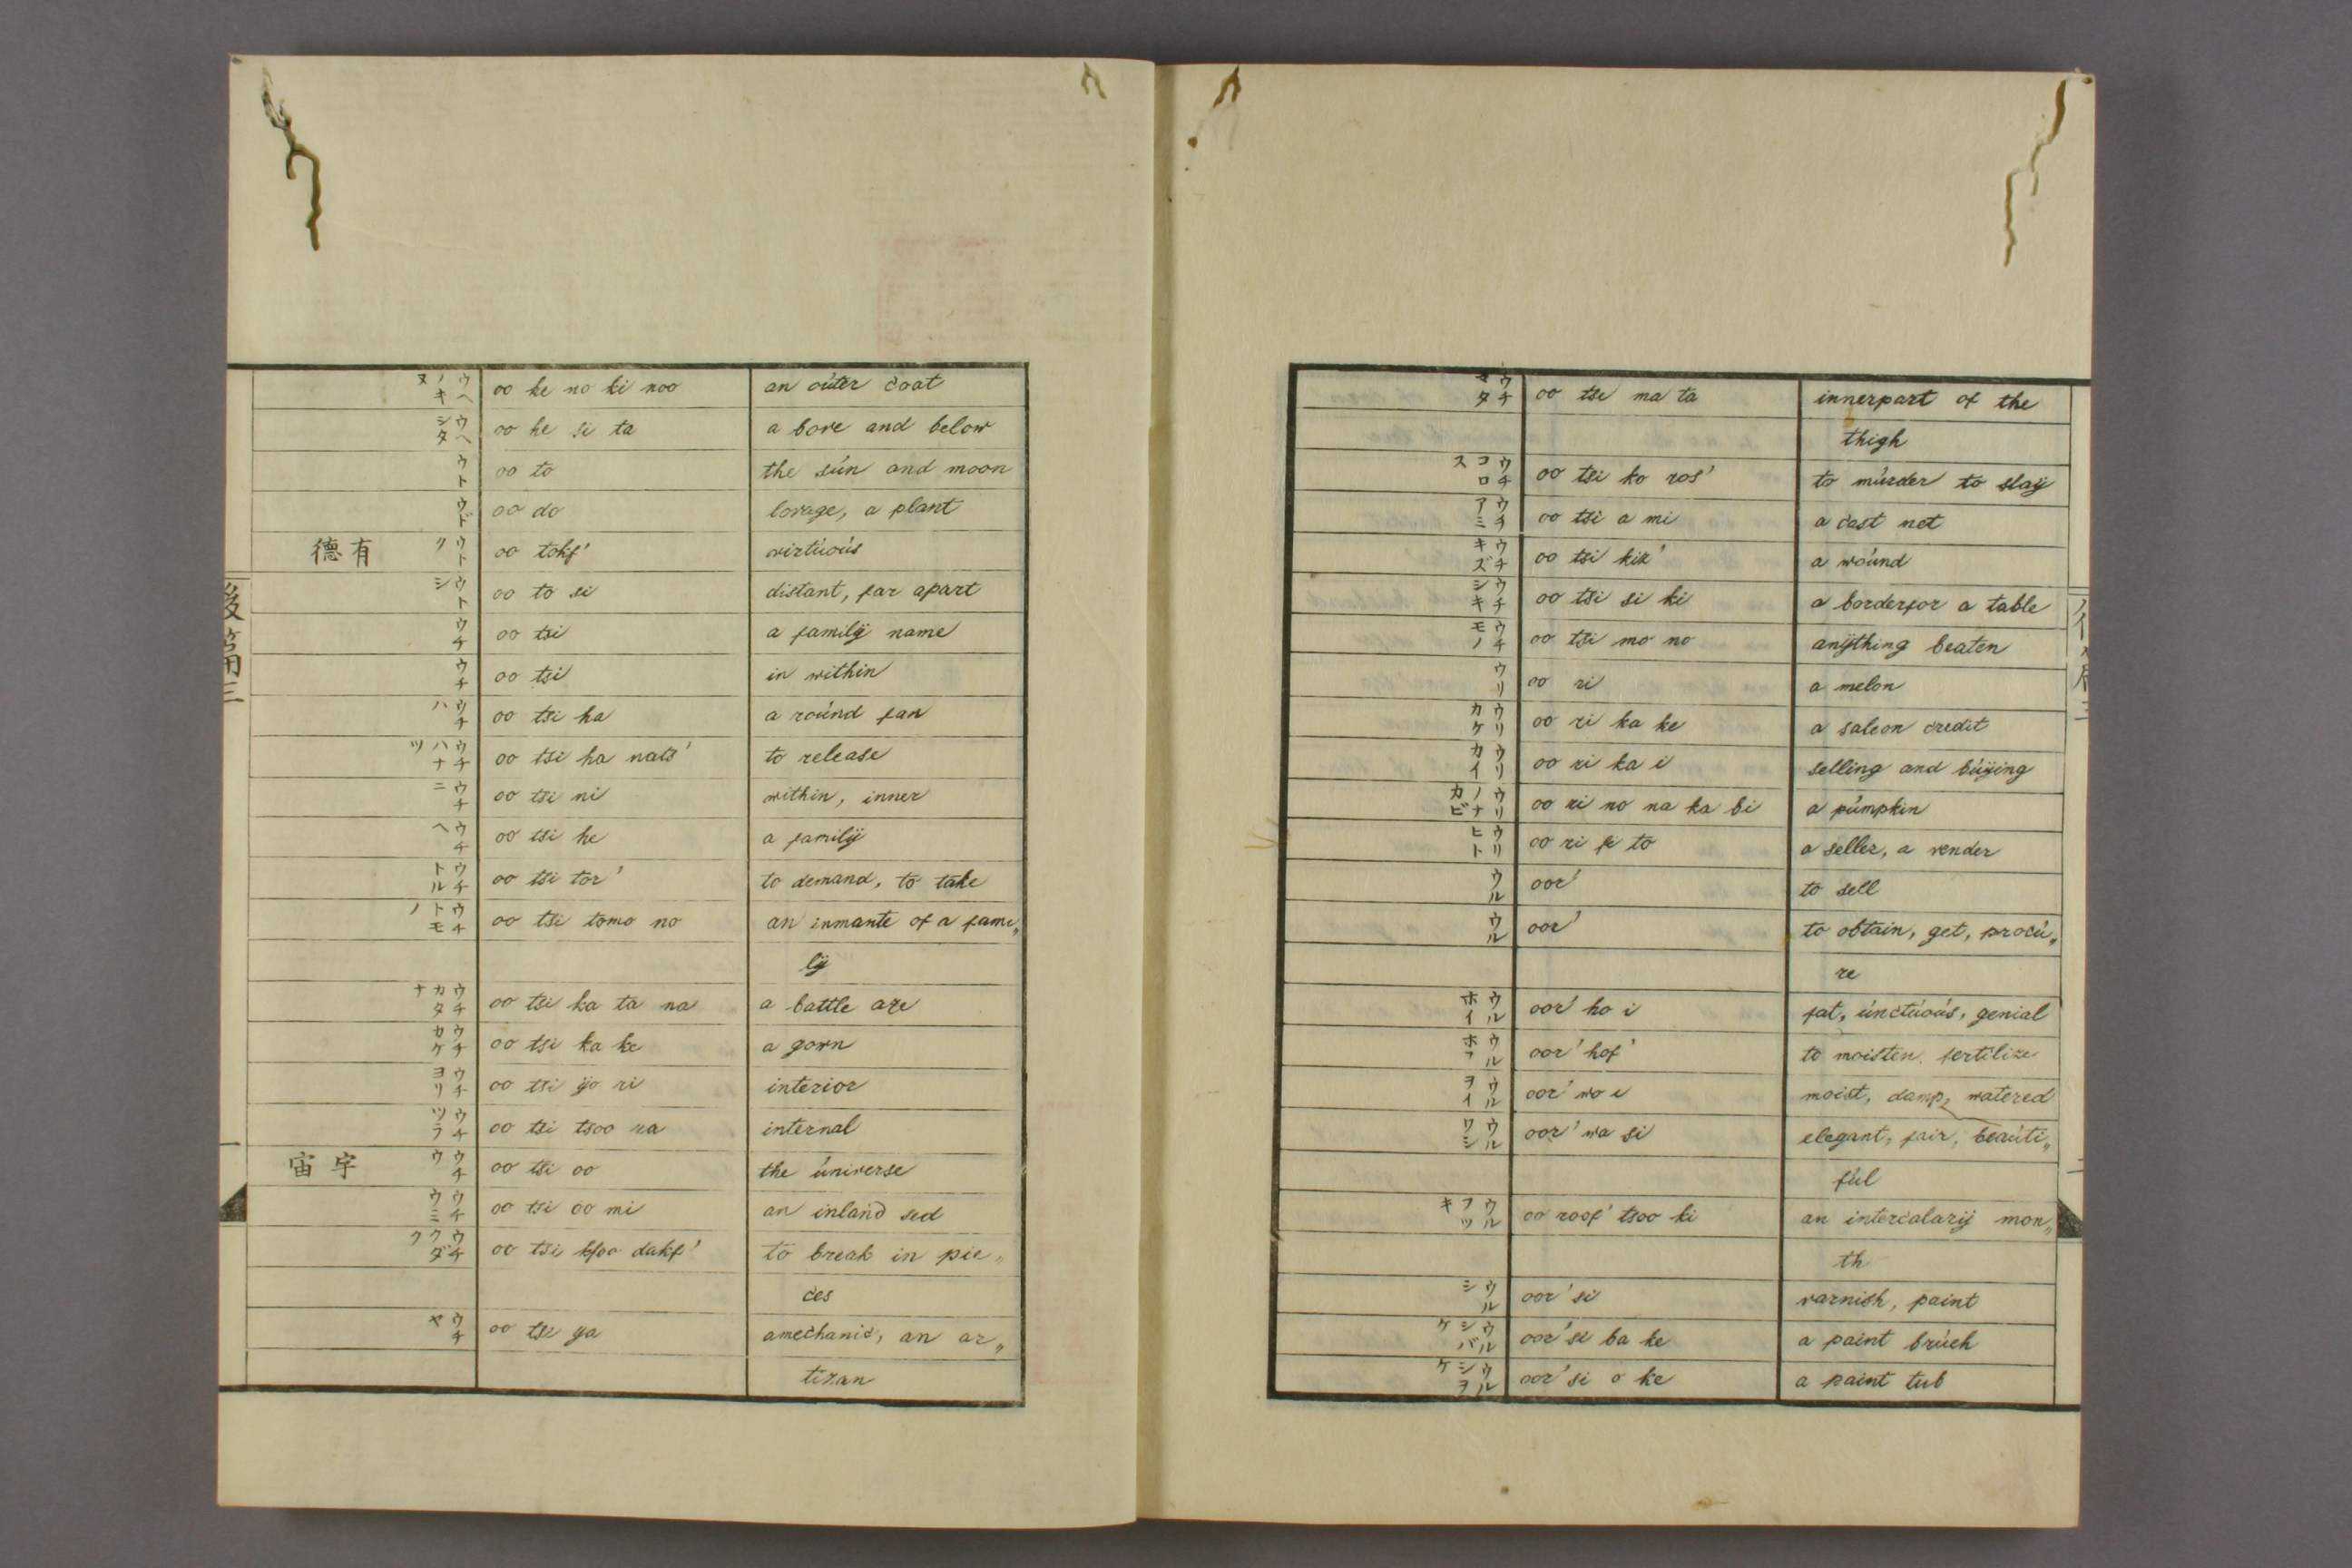 ウヘノキヌ oo he no ki noo an oúter coat
ウヘシタ oo he si ta a bove and below
ウト oo to the sún and moon
ウド oo do lovage, a plant
有德 ウトク oo tokf' virtúoús
ウトシ oo to si distant, far apart
ウチ oo tsi a familÿ name
ウチ oo tsi in within
ウチハ oo tsi ha a roúnd fan
ウチハナツ oo tsi ha nats' to release
ウチニ oo tsi ni within, inner
ウチヘ oo tsi he a familÿ
ウチトル oo tsi tor' to demand, to take
ウチトモノ oo tsi tomo no an inmante of a fami„
lÿ
ウチカタナ oo tsi ka ta na a battle axe
ウチカケ oo tsi ka ke a gown
ウチヨリ oo tsi ÿo ri interior
ウチツラ oo tsi tsoo ra internal
宇宙 ウチウ oo tsi oo the úniverse
ウチウミ oo tsi oo mi an inland sed
ウチクダク oo tsi kfoo dakf' to break in pie„
ces
ウチヤ oo tsi ya amechanic, an ar„
tizan
後篇三
一
ウチマタ oo tse ma ta innerpart of the
thigh
ウチコロス oo tsi ko ros' to múrder to slaÿ
ウチアミ oo tsi a mi a cast net
ウチキズ oo tsi kiz' a woúnd
ウチシキ oo tsi si ki a borderfor a table
ウチモノ oo tsi mo no anÿthing beaten
ウリ oo ri a melon
ウリカケ oo ri ka ke a saleon credit
ウリカイ oo ri ka i selling and búÿing
ウリノナカビ oo ri no na ka bi a púmpkin
ウリヒト oo ri fi to a seller, a vender
ウル oor' to sell
ウル oor' to obtain, get, procú„
re
ウルホイ oor' ho i fat, únctúoús, genial
ウルホフ oor' hof' to moisten, fertilize
ウルヲイ oor' wo i moist, damp, watered
ウルワシ oor' wa si elegant, fair, beaúti„
fúl
ウルフツキ oo roof' tsoo ki an intercalarÿ mon„
th
ウルシ oor' si varnish, paint
ウルシバケ oor' si ba ke a paint brúch
ウルシヲケ oor' si o ke a paint tub